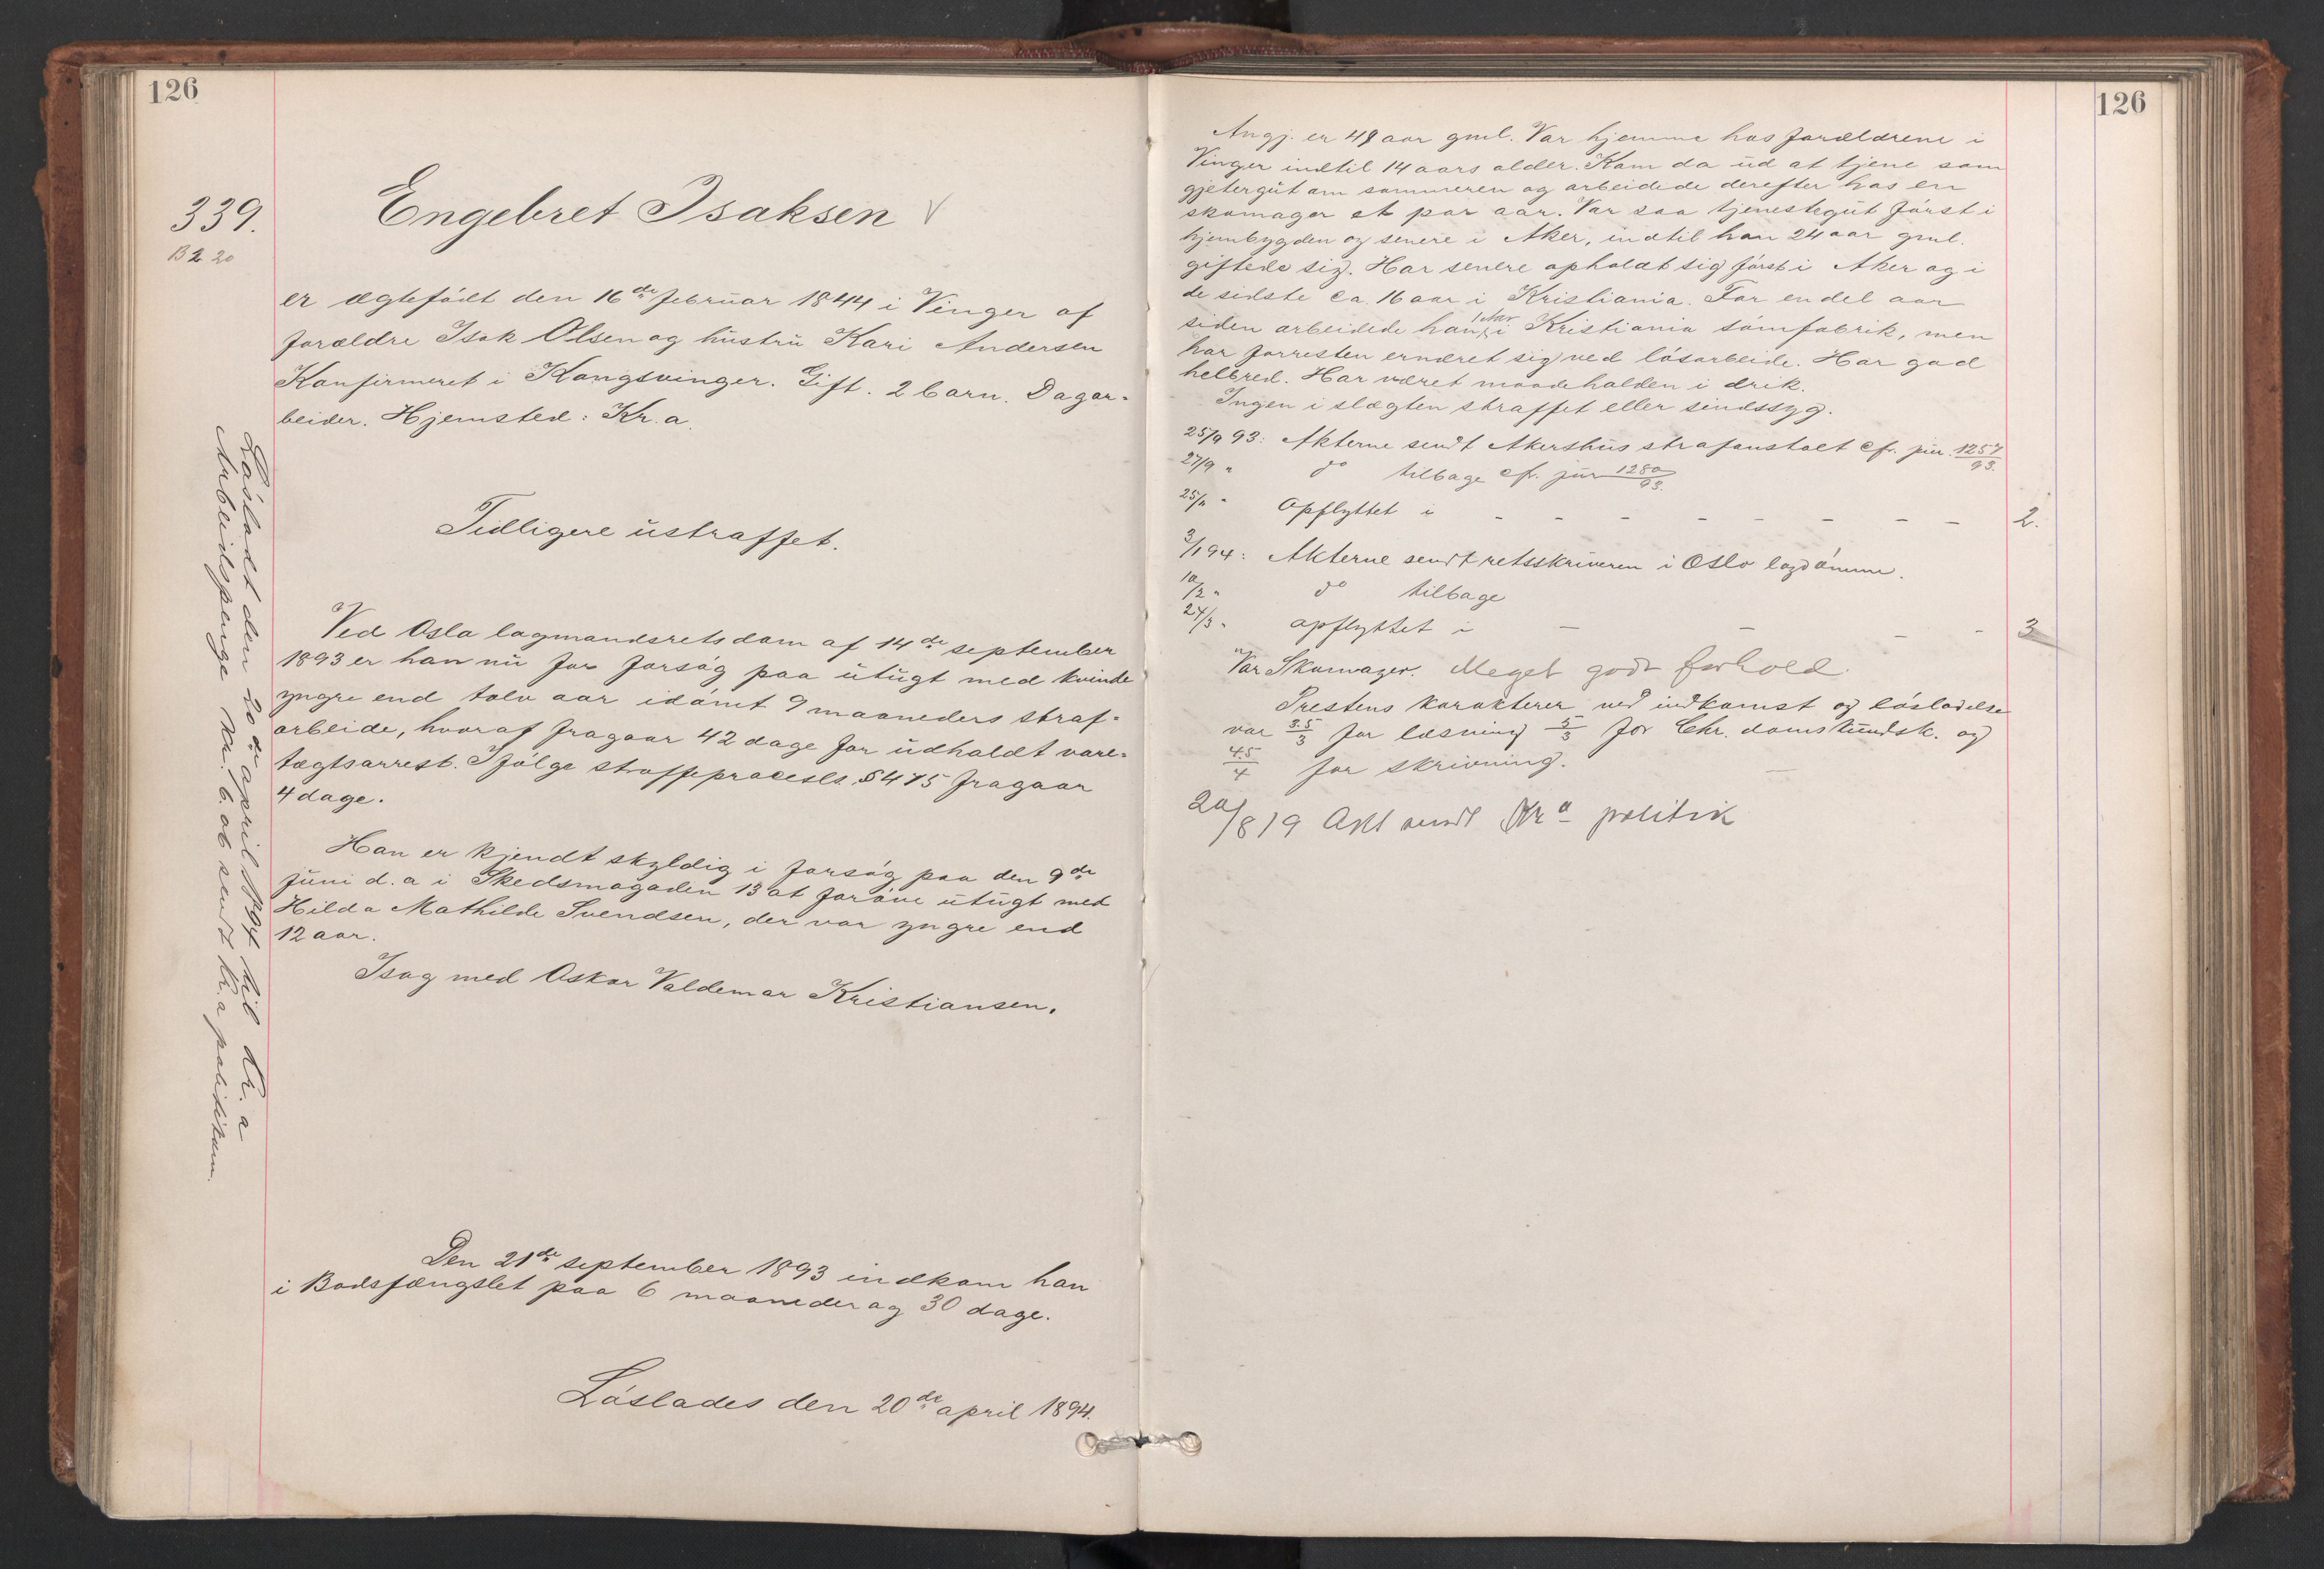 126
339.
B 2 20
Engebret Isaksen
er ægtefødt den 16de februar 1844 i Vinger af
forældre Isak Olsen og hustru Kari Andersen
Konfirmeret i Kongsvinger. Gift. 2 barn. Dagar-
beider. Hjemsted: Kr.a.
Tidligere ustraffet.
Ved Oslo lagmandsrets dom af 14de september
1893 er han nu for forsøg paa utugt med kvinde
yngre end tolv aar idømt 9 maaneders straf-
arbeide, hvoraf fragaar 42 dage for udholdt vare-
tægtsarrest. Ifølge straffeprocessl. § 475 fragaar
4 dage.
Han er kjendt skyldig i forsøg paa den 9de
juni d.a i Skedsmogaden 13 at forøve utugt med
Hilda Mathilde Svendsen, der var yngre end
12 aar.
Isag med Oskar Valdemar Kristiansen.
Den 21de september 1893 indkom han
i Bodsfængslet paa 6 maaneder og 30 dage.
Løslades den 20de april 1894.
Løsladt den 20de april 1894 til Kr.a
Arbeidspenge Kr. 6.06 sendt Kr.a politikam.
126
Angj. er 49 aar gml. Var hjemme hos forældrene i
Vinger indtil 14 aars alder. Kom da ud at tjene som
gjetergut om sommeren og arbeidede derefter hos en
skomager et par aar. Var saa tjenestegut først i
hjembygden og senere i Aker, indtil han 24 aar gml.
giftede sig. Har senere opholdt sig først i Aker og i
de sidste ca. 16 aar i Kristiania. For en del aar
siden arbeidede han 1 Aar i Kristiania sømfabrik, men
har forresten ernæret sig ved løsarbeide. Har god
helbred. Har været maadeholden i drik.
Ingen i slægten straffet eller sindssyg.
25/9 93: Akterne sendt Akershus strafanstalt cfr. jur. 1257/93.
27/9 " do tilbage cfr. jur 1280/93.
25/11 " Opflyttet i - - - - - - - - 2.
3/1 94: Akterne sendt retsskriveren i Oslo lagdømme.
10/2 " do tilbage
24/3 " opflyttet i - - - - 3
Var Skomager. Meget godt forhold.
Prestens karakterer ved indkomst og løsladelse
var 3.5/3 for læsning 5/3 for Chr. domskundsk. og
4.5/4 for skrivning.
20/8 19 Akt sendt Kra politik